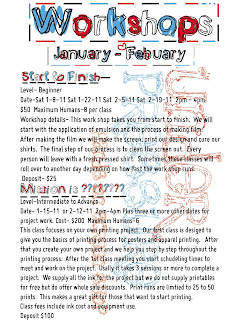 Workshops
January - Febuary
Start to Finish
Level- Beginner
Date-Sat 1-8-11 Sat 1-22-11 Sat 2-5-11 Sat 2-19-11 2pm - 4pm
$50 Maximum Humans-8 per class
Workshop details- This work shop takes you from start to finish. We will
start with the application of emulsion and the process of making film.
After making the film we will make the screen, print our design and cure our
shirts. The final step of our process is to clean the screen out. Every
person will leave with a fresh pressed shirt. Sometimes these classes will
roll over to another day depending on how fast the work shop runs.
Deposit- $25
Mission is ??????
Level-Intermediate to Advance
Date- 1-15-11 or 2-12-11 2pm-4pm Plus three or more other dates for
project work. Cost- $200 Maximum Humans-6
This class focuses on your own printing project. Our first class is designed to
give you the basics of printing process for posters and apparel printing. After
that you create your own project and we help you step by step throughout the
printing process. After the 1st class meeting you start scheduling times to
meet and work on the project. Usally it takes 3 sessions or more to complete a
project. We supply all the ink for the project but we do not supply printables
for free but do offer whole sale discounts. Print runs are limited to 25 to 50
prints. This makes a great gift for those that want to start printing.
Class fees include ink cost and equipment use.
Deposit $100